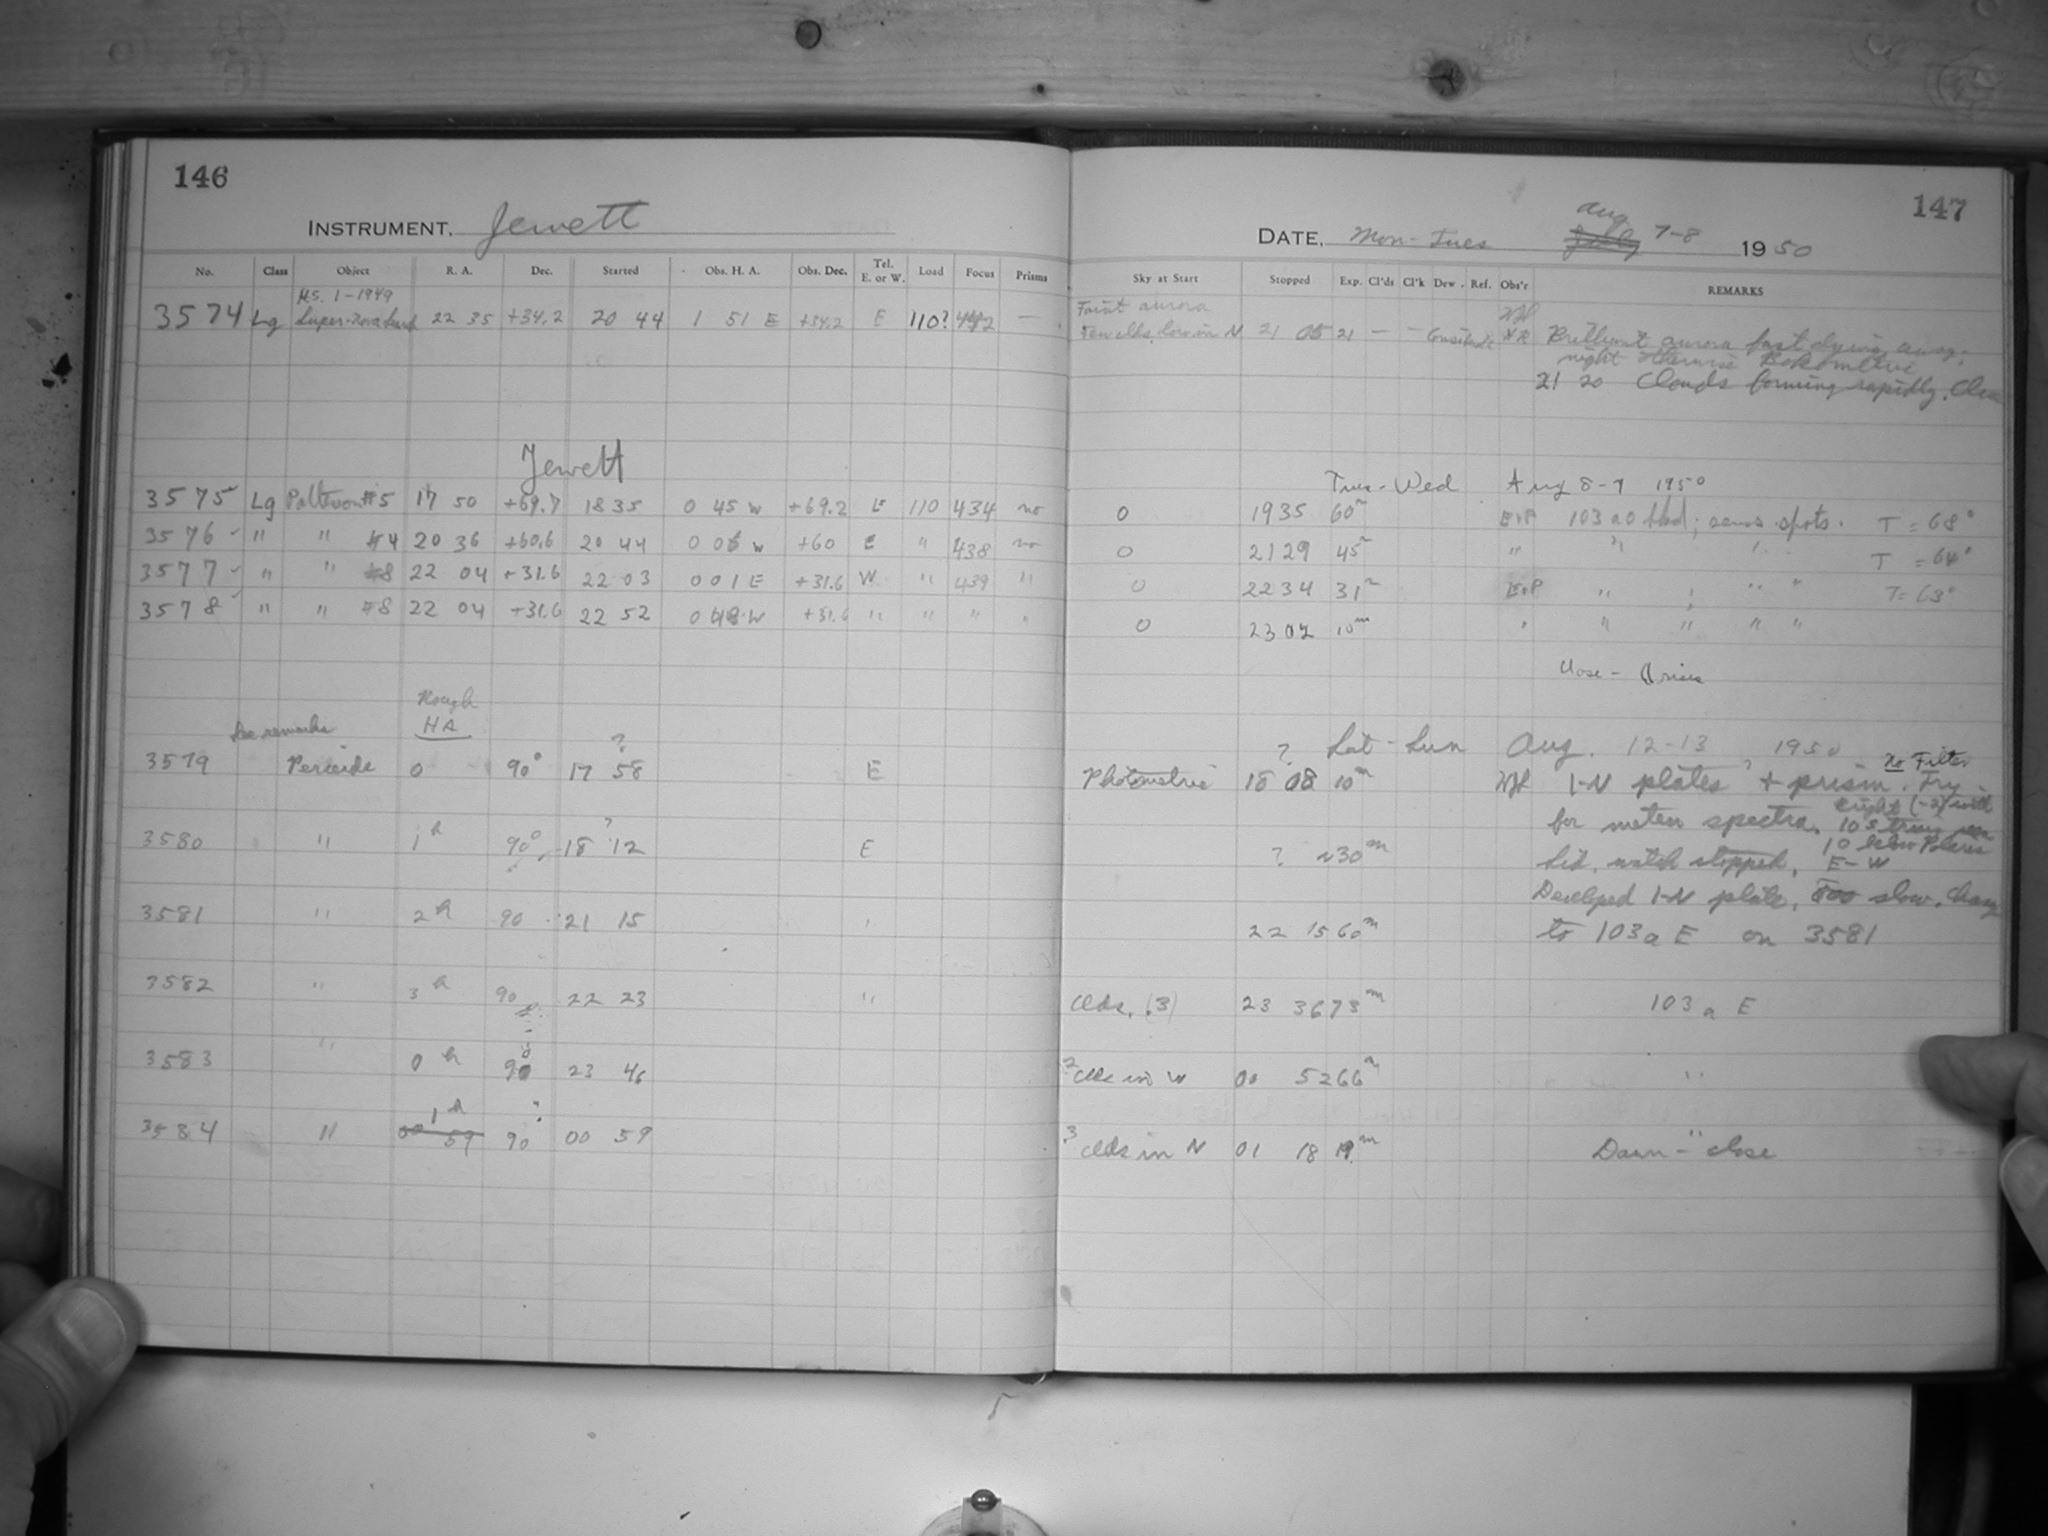 146
INSTRUMENT. Jewett
No. Class Object R. A. Dec. Started Obs. H. A. Obs. Dec. Tel. E. or W. Load Focus Prisms
1-1949
3574 Lg 22 35 +34.2 20 44 1 51 E +34.2 E 110? 442 —
Jewett
3575 Lg Patterson #5 17 50 +69.7 18 35 0 45 W +69.2 E 110 434 no
3576 " " #4 20 36 +60.6 20 44 0 06 W +60 E " 438 no
3577 " " #8 22 04 +31.6 22 03 0 01 E +31.6 W " 439 "
3578 " " #8 22 04 +31.6 22 52 0 48 W +31.6 " " " "
Rough
See remarks HA
3579 Perseids 0 90° 17 58 ? E
3580 " 1h 90° 18 12 ? E
3581 " 2h 90 21 15 "
3582 " 3h 90 22 23 "
3583 " 0h 90 23 46
3584 " 00 59 1h 90 00 59
147
DATE. Mon-Tues July Aug 7-8 1950
Sky at Start Stopped Exp. Cl'ds Cl'k Dew. Ref. Obs'r REMARKS
Faint aurora
Few clds. low in N 21 05 21 — — HR Brilliant aurora fast dying away;
night otherwise
21 20 Clouds forming rapidly. Close
Tues-Wed Aug 8-9 1950
0 1935 60m 103aO ; some spots. T = 68°
0 2129 45m " " T = 64°
0 2234 31m " " " T = 63°
0 2302 10m " " " " "
Close -
? Sat-Sun Aug. 12-13 1950 no Filter
Photometric 18 08 10m I-N plates + prism. Try
for meteor spectra.
10 below Polaris
? ~30m Sid. watch stopped. E-W
Developed I-N plate. Too slow. Change
22 15 60m to 103a E on 3581
Clds. (3) 23 36 73m 103a E
2 Clds in W 00 52 66m "
3 Clds in N 01 18 19m Dawn - close